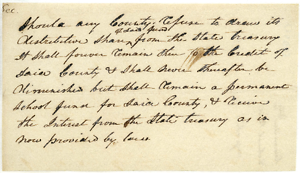 Should any County refuse to draw its
of said fund
distributive share from the State treasury
it shall forever remain there to the Credit of
said County & shall never thereafter be
diminished but shall remain a permanent
school fund for said County, & receive
the Interest from the State treasury as is
now provided by law